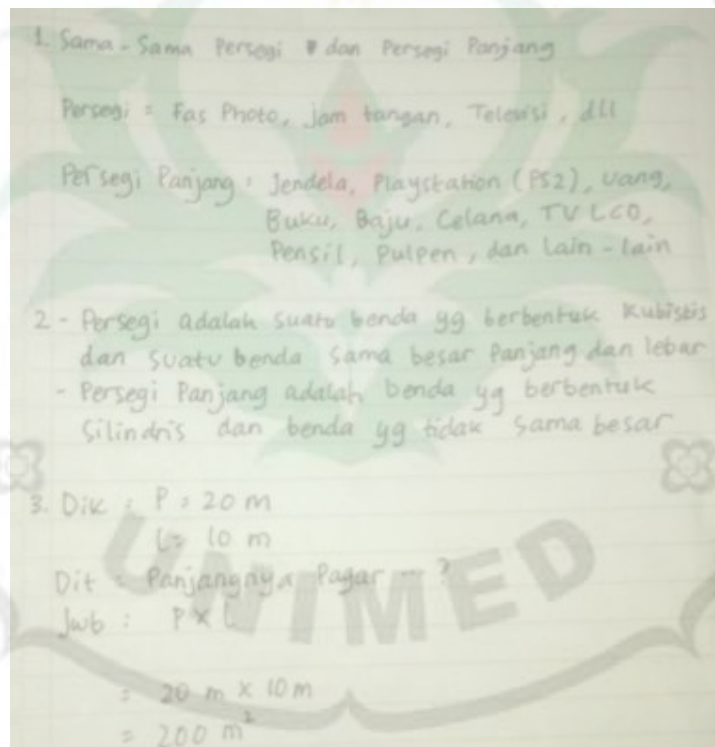 1. Sama - Sama Persegi dan Persegi Panjang
Persegi = Fas Photo, jam tangan, Televisi, dll
Persegi Panjang : Jendela, Playstation (PS2), Uang,
Buku, Baju, Celana, TV LCD,
Pensil, Pulpen, dan Lain - lain
2 - Persegi adalah suatu benda yg berbentuk kubistis
dan suatu benda sama besar Panjang dan lebar
- Persegi Panjang adalah benda yg berbentuk
Silindris dan benda yg tidak sama besar
3. Dik : P = 20 m
l = 10 m
Dit = Panjangnya Pagar --- ?
Jwb : P x L
= 20 m x 10 m
= 200 m²
UNIMED